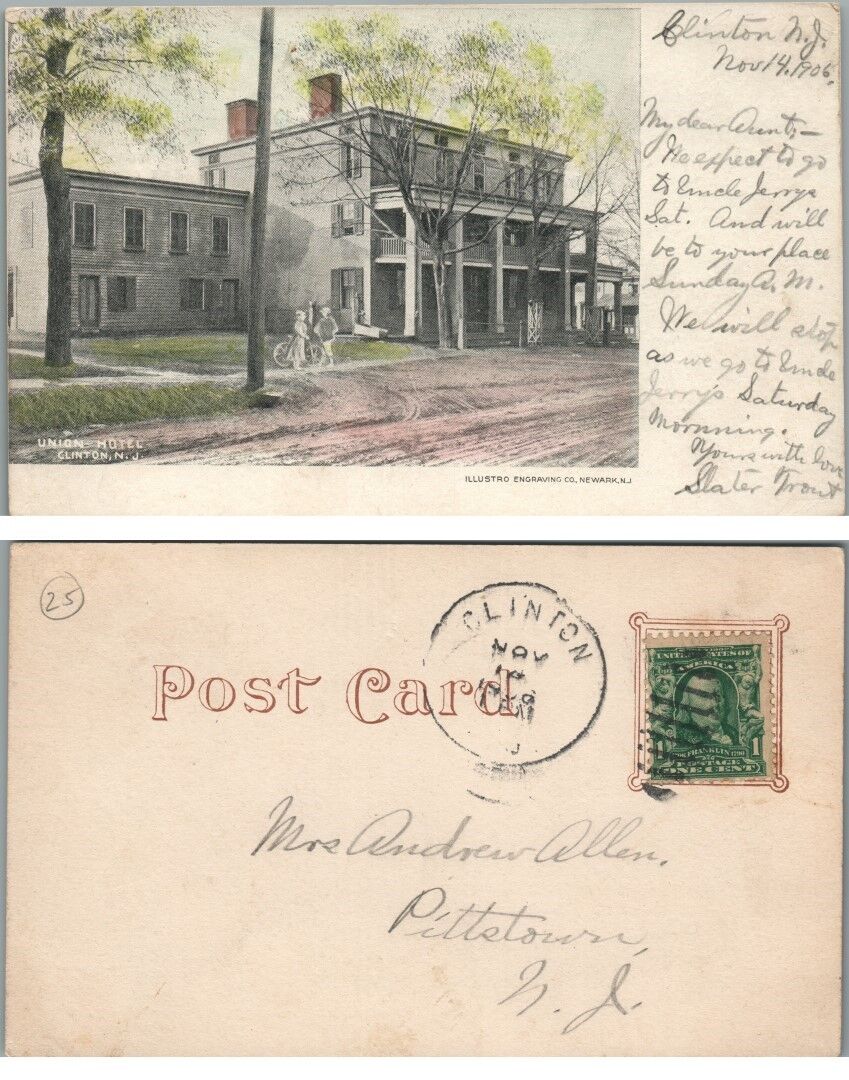 Clinton N.J.
Nov 14, 1906.
My dear Aunt,—
We expect to go
to Uncle Jerrys
Sat. And will
be to your place
Sunday A. M.
We will stop
as we go to Uncle
Jerry's Saturday
Mornning.
Yours with love
Slater Trout
UNION HOTEL
CLINTON, N. J.
ILLUSTRO ENGRAVING CO., NEWARK, N.J.
25
CLINTON
NOV
14
J
Post Card
UNITED STATES OF
AMERICA
FRANKLIN 1790
1
POSTAGE
ONE CENT
Mrs Andrew Allen.
Pittstown,
N. J.